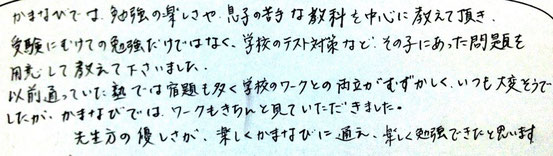 かまなびでは、勉強の楽しさや、息子の苦手な教科を中心に教えて頂き、
受験にむけての勉強だけではなく、学校のテスト対策など、その子にあった問題を
用意して教えて下さいました。
以前通っていた塾では宿題も多く学校のワークとの両立がむずかしく、いつも大変そうで
したが、かまなびでは、ワークもきちんと見ていただきました。
先生方の優しさが、楽しくかまなびに通え、楽しく勉強できたと思います